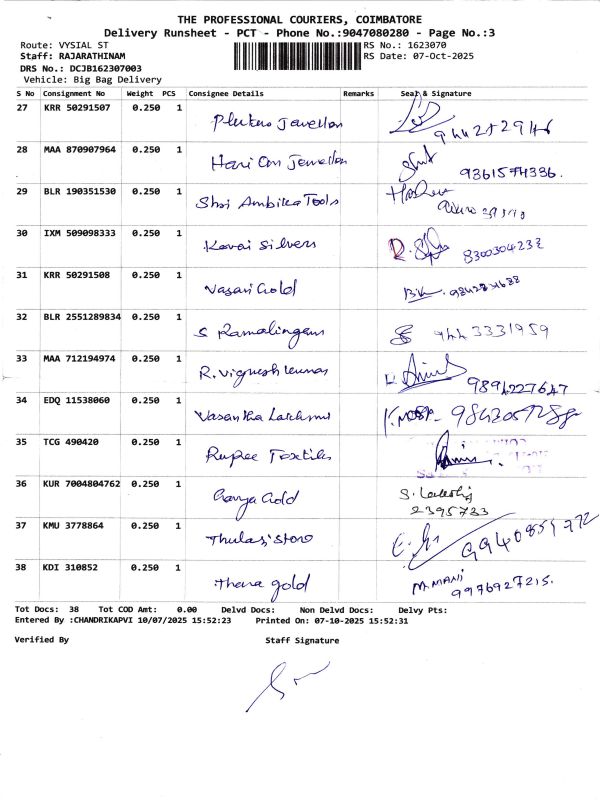 THE PROFESSIONAL COURIERS, COIMBATORE
Delivery Runsheet - PCT - Phone No.:9047080280 - Page No.:3
Route: VYSIAL ST
RS No.: 1623070
Staff: RAJARATHINAM
RS Date: 07-Oct-2025
DRS No.: DCJB162307003
Vehicle: Big Bag Delivery
S No Consignment No Weight PCS Consignee Details Remarks Seal & Signature
27 KRR 50291507 0.250 1 Jewellers
28 MAA 870907964 0.250 1 Hari Om Jewellers 9361574336.
29 BLR 190351530 0.250 1 Shri Ambika Tools
30 IXM 509098333 0.250 1 Kovai Silvers 8300304232
31 KRR 50291508 0.250 1 Vasavi Gold
32 BLR 2551289834 0.250 1 S Ramalingam 944 3331959
33 MAA 712194974 0.250 1 R. Vignesh kumar 9894227647
34 EDQ 11538060 0.250 1 Vasantha Lakshmi
35 TCG 490420 0.250 1 Rupee Textiles
36 KUR 7004804762 0.250 1 Gold
2395733
37 KMU 3778864 0.250 1 Thulasi store
38 KDI 310852 0.250 1 Thana gold M. MANI
9976927215.
Tot Docs: 38 Tot COD Amt: 0.00 Delvd Docs: Non Delvd Docs: Delvy Pts:
Entered By :CHANDRIKAPVI 10/07/2025 15:52:23 Printed On: 07-10-2025 15:52:31
Verified By Staff Signature